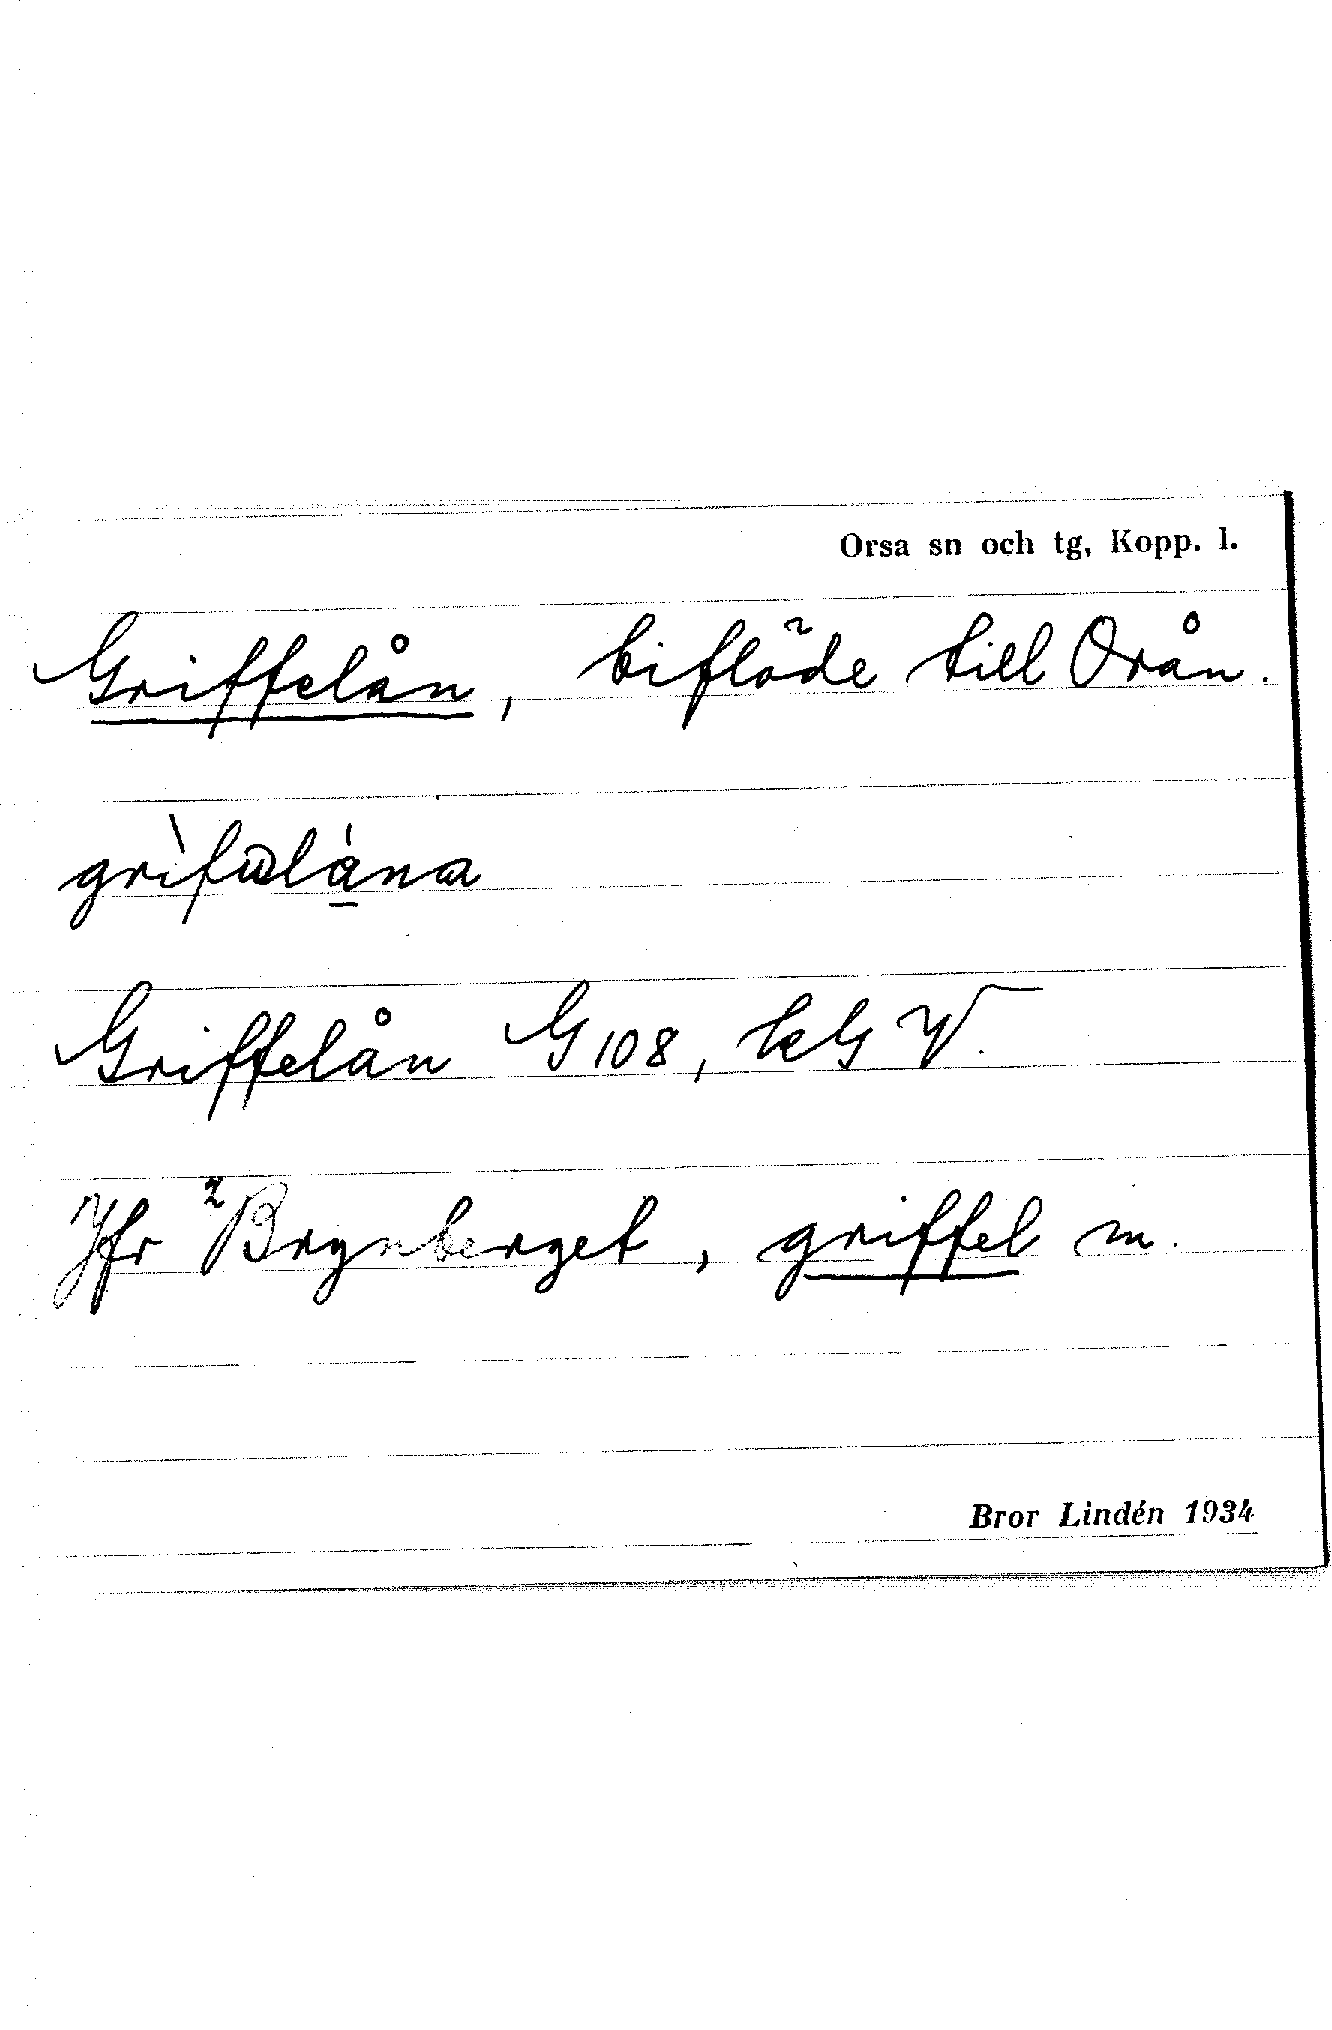 Orsa sn och tg, Kopp. l.
Griffelån, biflöde till Orån.
Griffelån G 108, 
Jfr ²Brynberget, griffel m.
Bror Lindén 1934